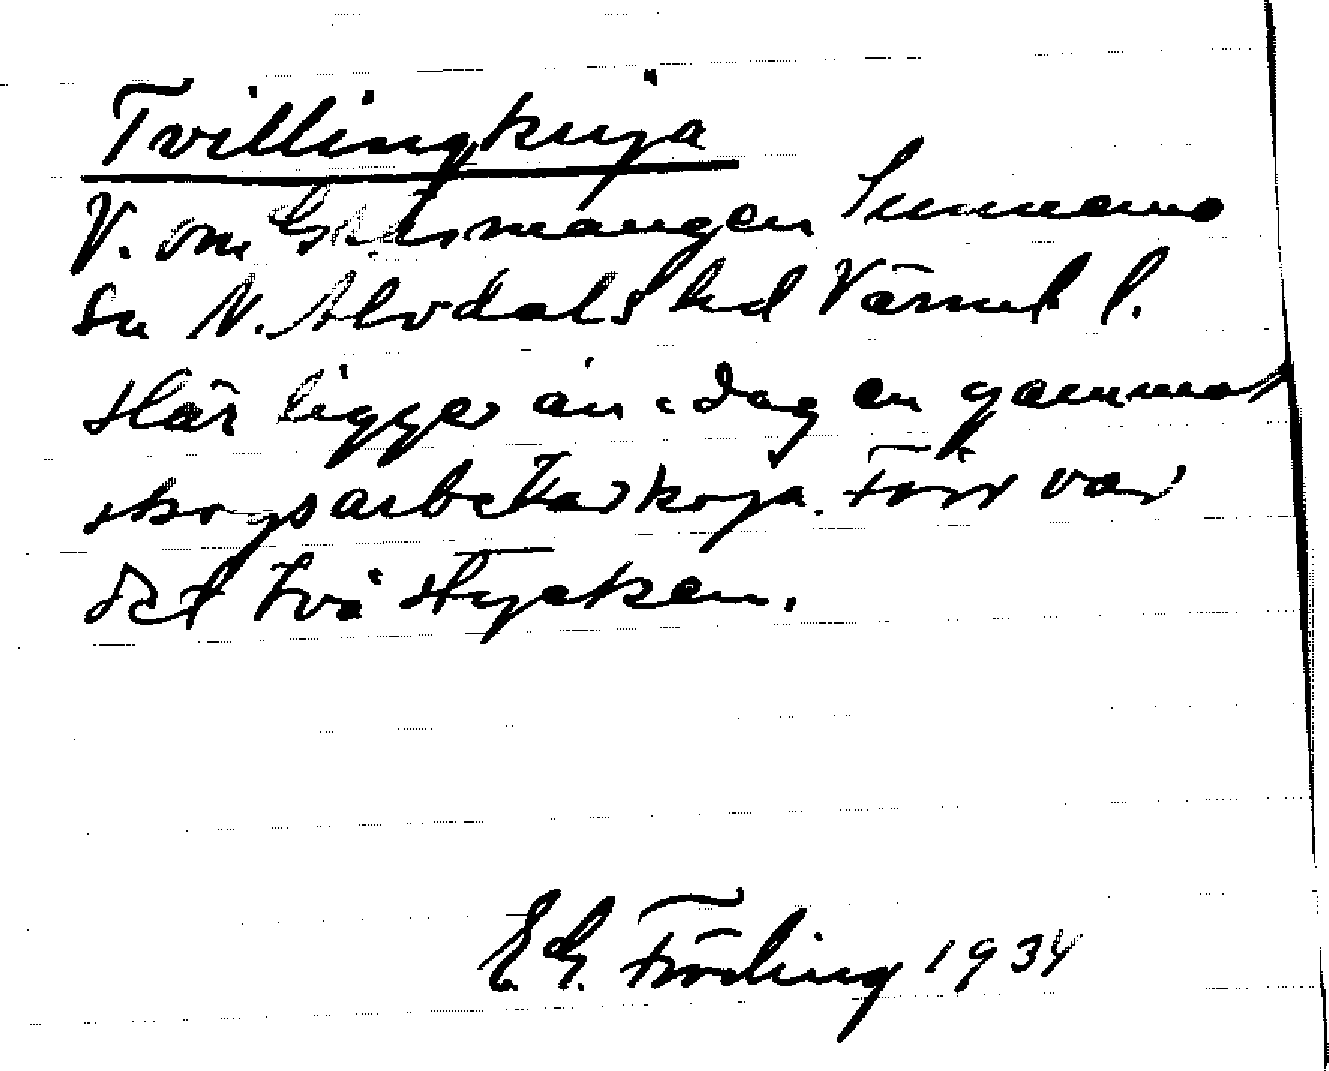 Tvillingkoja
V. om Sunnemo
Sn N. Älvdals hd Värml l.
Här ligger än i dag en gammal
skogsarbetarkoja. Förr var
det två stycken.
E. G. Fröding 1934